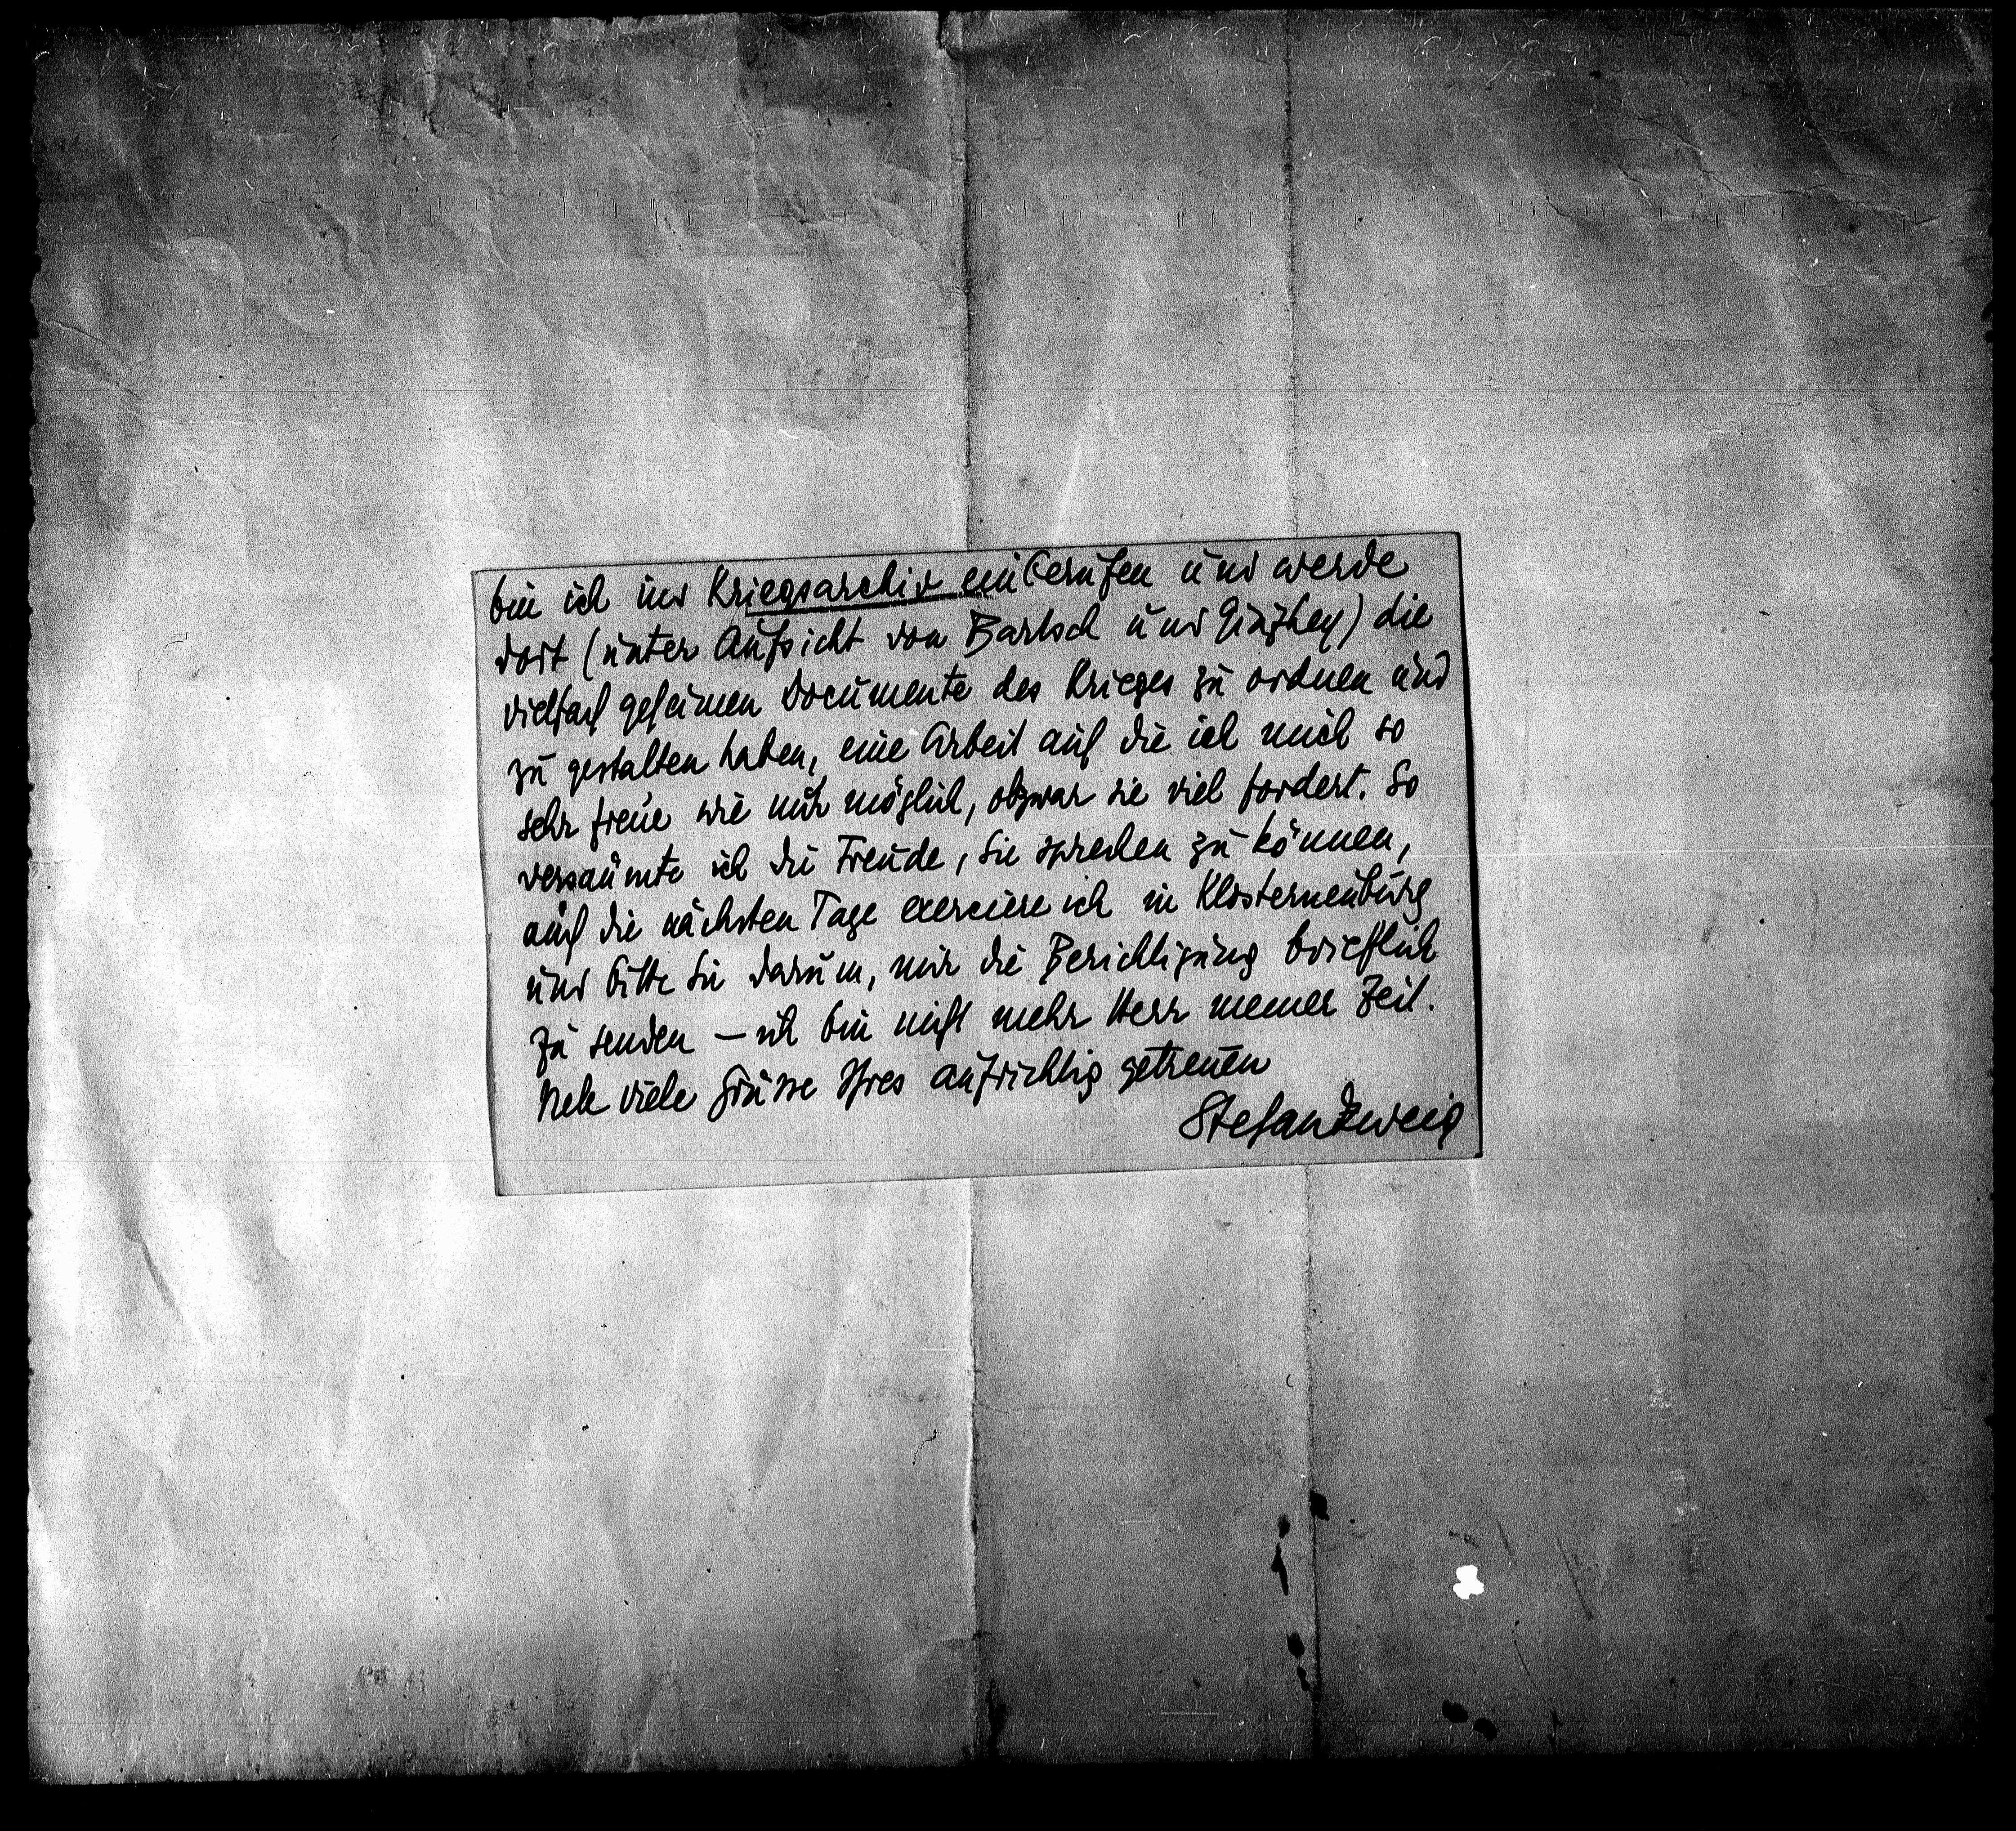 bin ich ins Kriegsarchiv einberufen und werde
dort (unter Aufsicht von Bartsch und Ginzkey) die
vielfach geheimen Documente des Krieges zu ordnen und
zu gestalten haben, eine Arbeit auf die ich mich so
sehr freue wie nur möglich, obzwar sie viel fordert. So
versäumte ich die Freude, Sie sprechen zu können,
auch die nächsten Tage exerciere ich in Klosterneuburg
und bitte Sie darum, mir die Berichtigung brieflich
zu senden – ich bin nicht mehr Herr meiner Zeit.
viele Grüsse Ihres aufrichtig getreuen
Stefan Zweig